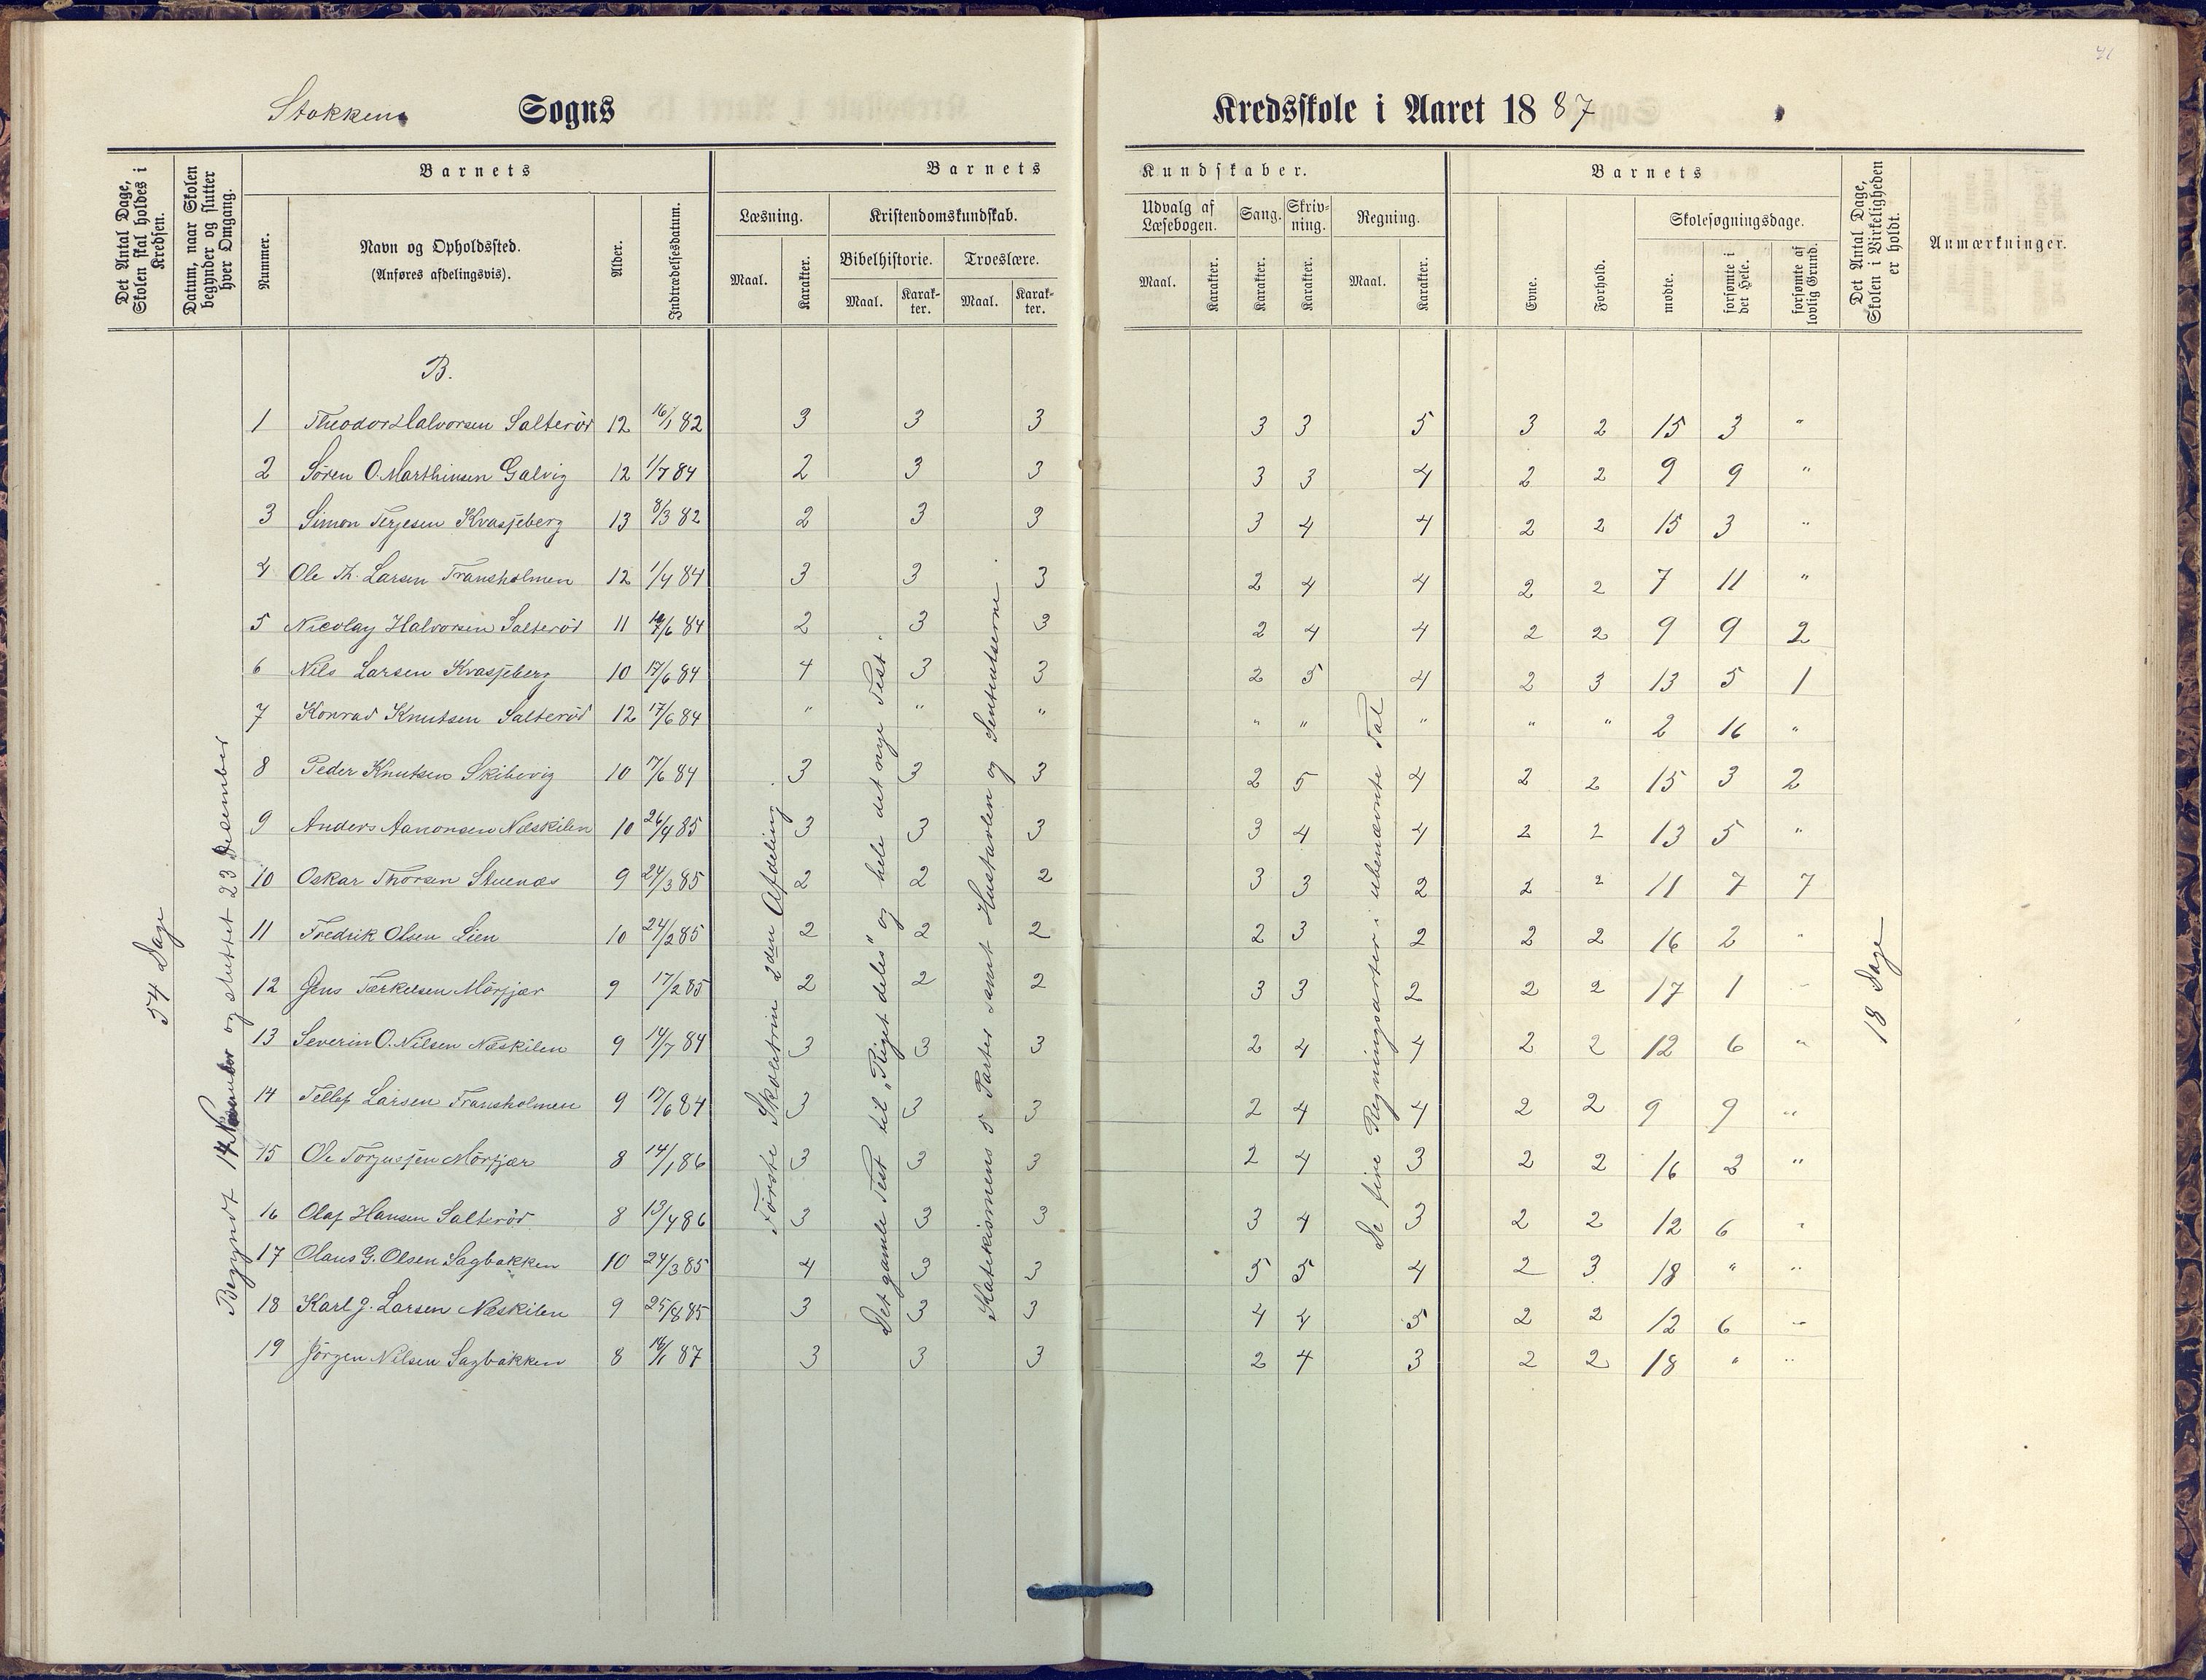 71
Stokkens Sogns Kredsskole i Aaret 1887
Det Antal Dage, Skolen skal holdes i Kredsen.
Datum, naar Skolen begynder og slutter hver Omgang.
Barnets
Nummer.
Navn og Opholdssted.
(Anføres afdelingsvis).
Alder.
Indtrædelsesdatum.
Barnets Kundskaber.
Læsning.
Maal.
Karakter.
Kristendomskundskab.
Bibelhistorie.
Maal.
Karakter.
Troeslære.
Maal.
Karakter.
Udvalg af Læsebogen.
Maal.
Karakter.
Sang.
Karakter.
Skrivning.
Karakter.
Regning.
Maal.
Karakter.
Barnets
Evne.
Forhold.
Skolesøgningsdage.
mødte.
forsømte i det Hele.
forsømte af lovlig Grund.
Det Antal Dage, Skolen i Virkeligheden er holdt.
Anmærkninger.
54 Dage
Begyndt 14 November og sluttet 23 Desember
Første Skoletrin 2den Afdeling.
Det gamle Test til „Riget deles" og hele det nye Test.
Katekismens 5 Parter samt Hustavlen og Sententserne.
De fire Regningsarter i ubenævnte Tal
18 Dage
B.
1 Theodor Halvorsen Salterød 12 16/1 82 3 3 3 3 3 5 3 2 15 3 "
2 Søren O. Marthinsen Galvig 12 1/7 84 2 3 3 3 3 4 2 2 9 9 "
3 Simon Terjesen Kvasjeberg 13 8/3 82 2 3 3 3 4 4 2 2 15 3 "
4 Ole Th. Larsen Fransholmen 12 1/4 84 3 3 3 2 4 4 2 2 7 11 "
5 Nicolay Halvorsen Salterød 11 /6 84 2 3 3 2 4 4 2 2 9 9 2
6 Nils Larsen Kvasjeberg 10 17/6 84 4 3 3 2 5 4 2 3 13 5 1
7 Konrad Knutsen Salterød 12 17/6 84 " " " " " " " " 2 16 "
8 Peder Knutsen Skibevig 10 17/6 84 3 3 3 2 5 4 2 2 15 3 2
9 Anders Aanonsen Næskilen 10 26/4 85 3 3 3 3 4 4 2 2 13 5 "
10 Oskar Thorsen Stuenæs 9 24/3 85 2 2 2 3 3 2 2 2 11 7 7
11 Fredrik Olsen Lien 10 24/2 85 2 2 2 2 3 2 2 2 16 2 "
12 Jens Tærkelsen Mørfjær 9 17/2 85 2 2 2 3 3 2 2 2 17 1 "
13 Severin O. Nilsen Næskilen 9 14/7 84 3 3 3 2 4 4 2 2 12 6 "
14 Tellef Larsen Fransholmen 9 17/6 84 3 3 3 2 4 4 2 2 9 9 "
15 Ole Torjussen Mørfjær 8 14/1 86 3 3 3 2 4 3 2 2 16 2 "
16 Olaf Hansen Salterød 8 13/4 86 3 3 3 3 4 3 2 2 12 6 "
17 Olaus G. Olsen Sagbakken 10 24/3 85 4 3 3 5 5 4 2 3 18 " "
18 Karl J. Larsen Næskilen 9 25/8 85 3 3 3 4 4 5 2 2 12 6 "
19 Jørgen Nilsen Sagbakken 8 14/1 87 3 3 3 2 4 3 2 2 18 " "